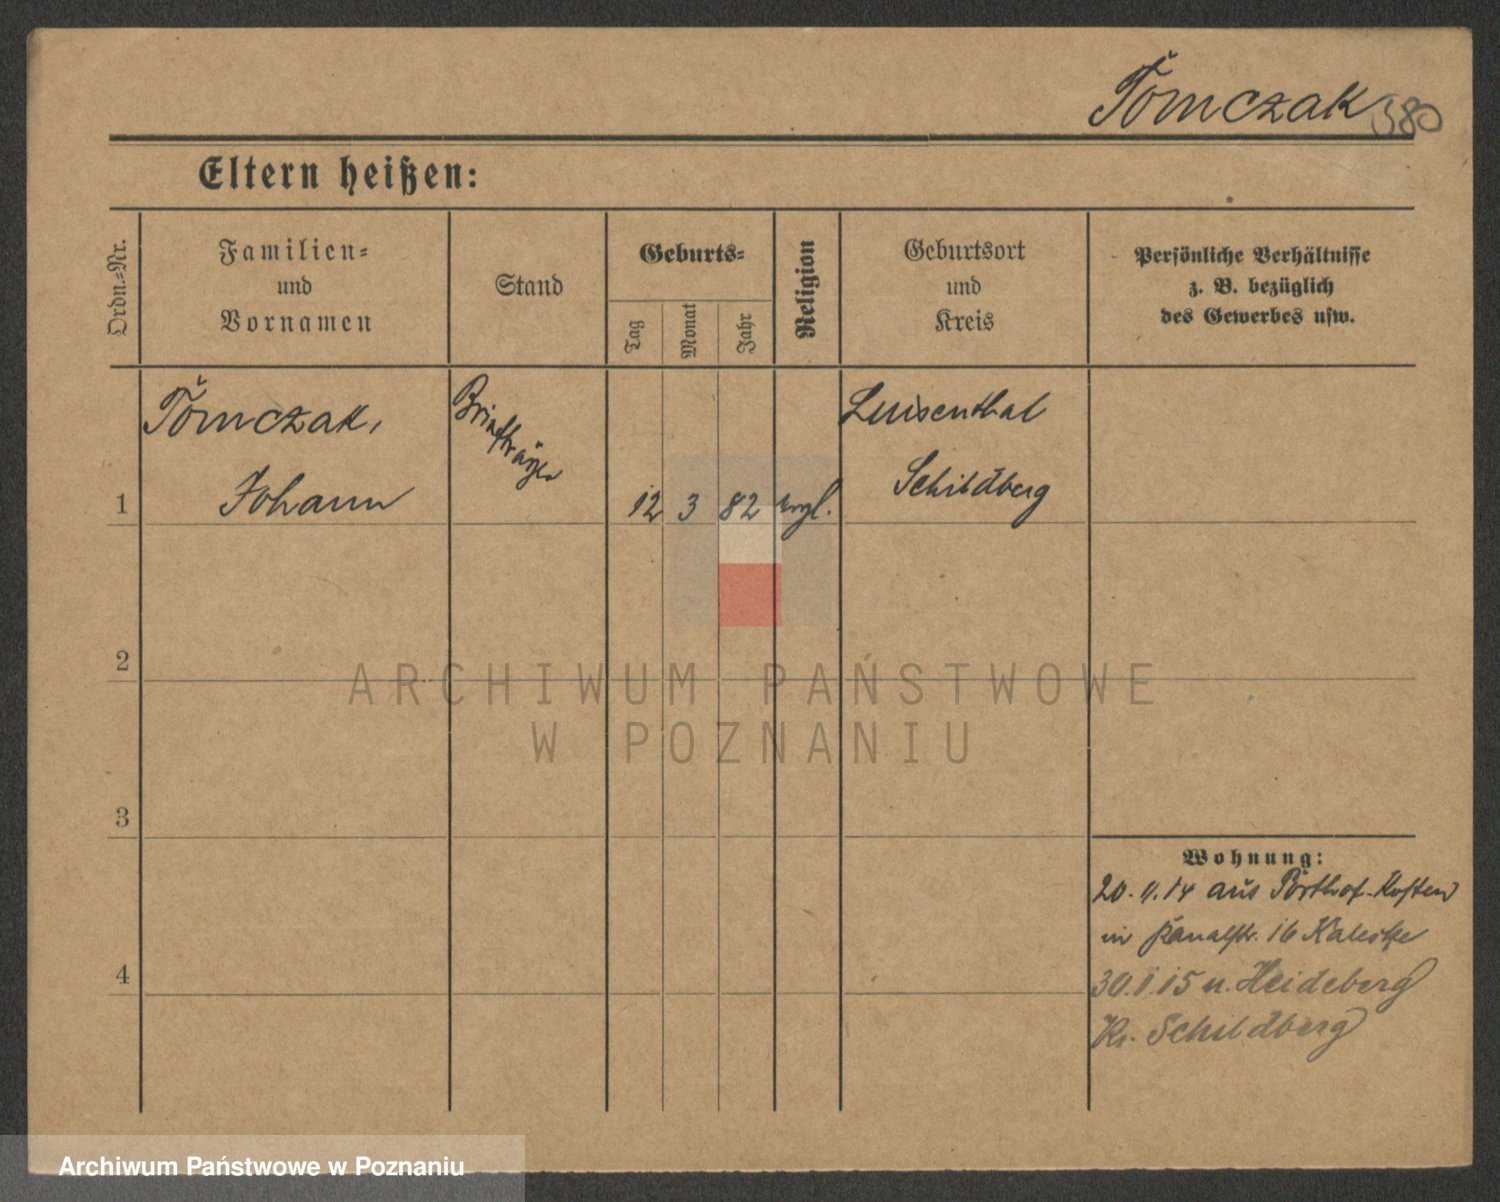 Tomczak 380
Eltern heißen:
Ordn.=Nr.
Familien=
und
Vornamen
Stand
Geburts=
Tag
Monat
Jahr
Religion
Geburtsort
und
Kreis
Persönliche Verhältnisse
z. B. bezüglich
des Gewerbes usw.
Tomczak,
Johann
Briefträger
1
12 3 82 evgl.
Luisenthal
Schildberg
2
3
4
ARCHIWUM PAŃSTWOWE
W POZNANIU
Wohnung:
20. 11. 14 aus Kosten
in Kanalstr. 16
30.1.15 n. Heideberg
Kr. Schildberg
Archiwum Państwowe w Poznaniu